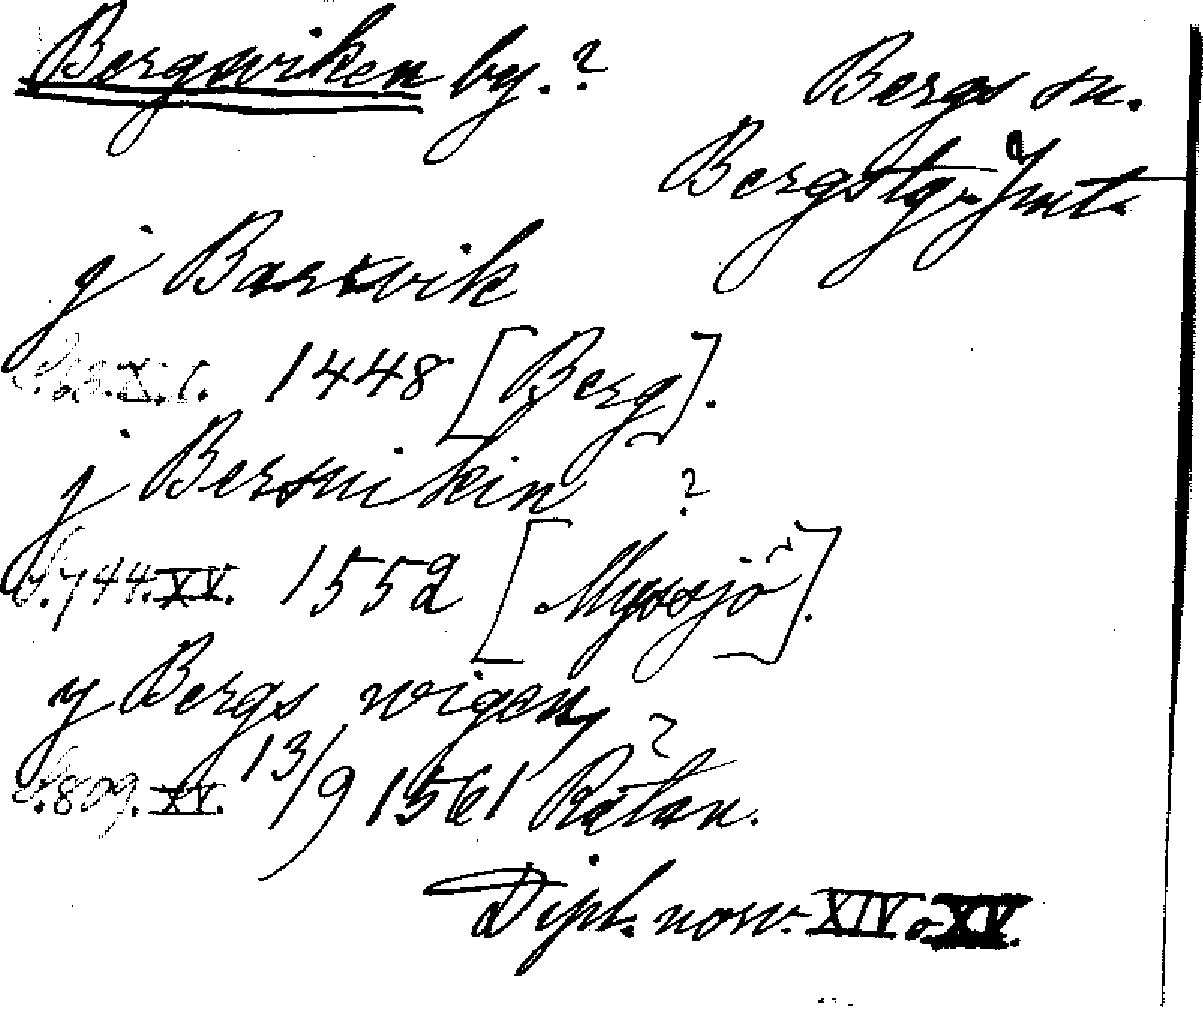 Bergsviken by.?
Bergs sn.
Bergs tg. Jmt.
j Barxvik
1448 [Berg].
j Bersuikin ?
S. 744. XV. 1552 [Myssjö].
y Bergs wigen, ?
S. 809. XV. 13/9 1561 Rätan.
Dipl. norv. XIV o XV.